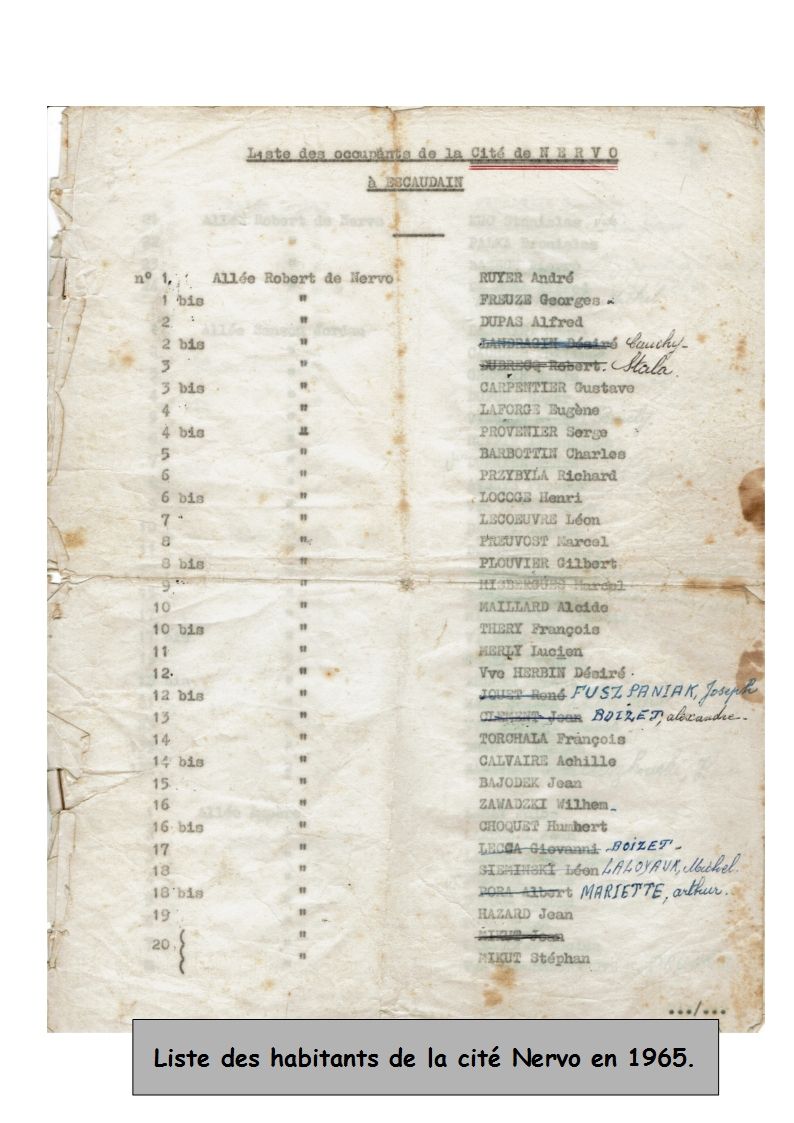 Liste des occupants de la Cité de N E R V O
à ESCAUDAIN
n° 1, Allée Robert de Nervo RUYER André
1 bis " FREUZE Georges
2 " DUPAS Alfred
2 bis " LANDRAGIN Désiré Cauchy-
3 " DUBRECQ Robert. Stala.
3 bis " CARPENTIER Gustave
4 " LAFORGE Eugène
4 bis " PROVENIER Serge
5 " BARBOTTIN Charles
6 " PRZYBYLA Richard
6 bis " LOCOGE Henri
7 " LECOEUVRE Léon
8 " PREUVOST Marcel
8 bis " PLOUVIER Gilbert
9 " MISBERGUES Marcel
10 " MAILLARD Alcide
10 bis " THERY François
11 " MERLY Lucien
12 " Vve HERBIN Désiré
12 bis " JOUET René FUSZPANIAK, Joseph
13 " CLEMENT Jean BOIZET, alexandre-
14 " TORCHALA François
14 bis " CALVAIRE Achille
15 " BAJODEK Jean
16 " ZAWADZKI Wilhem
16 bis " CHOQUET Humbert
17 " LECCA Giovanni BOIZET-
18 " SIEMINSKI Léon LALOYAUX, Michel.
18 bis " PORA Albert MARIETTE, arthur.
19 " HAZARD Jean
20 { " MIKUT Jean
" MIKUT Stéphan
.../...
Liste des habitants de la cité Nervo en 1965.